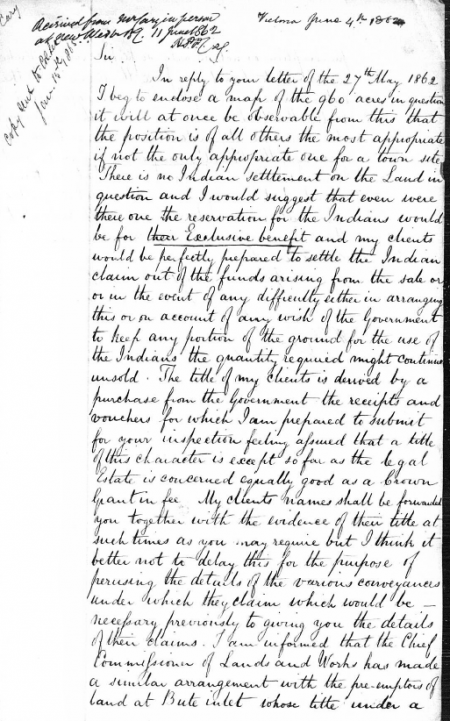 Cary
Received from Mr Cary in person
at New West. B.C. 11 June 1862
Victoria June 4th 1862
Copy sent to
Sir
In reply to your letter of the 27th May 1862
I beg to enclose a map of the 960 acres in question
it will at once be observable from this that
the position is of all others the most appropriate
if not the only appropriate one for a town site
There is no Indian settlement on the Land in
question and I would suggest that even were
there one the reservation for the Indians would
be for their Exclusive benefit and my clients
would be perfectly prepared to settle the Indian
claim out of the funds arising from the sale or
or in the event of any difficulty either in arranging
this or on account of any wish of the Government
to keep any portion of the ground for the use of
the Indians the quantity required might continue
unsold. The title of my Clients is derived by a
purchase from the Government the receipts and
vouchers for which I am prepared to submit
for your inspection feeling assured that a title
of this character is except so far as the legal
Estate is concerned equally good as a Crown
Grant in fee My clients names shall be forwarded
you together with the evidence of their title at
such times as you may require but I think it
better not to delay this for the purpose of
perusing the details of the various conveyances
under which they claim which would be –
necessary previously to giving you the details
of their claims. I am informed that the Chief
Commissioner of Lands and Works has made
a similar arrangement with the pre-emptors of
land at Bute inlet whose title under a